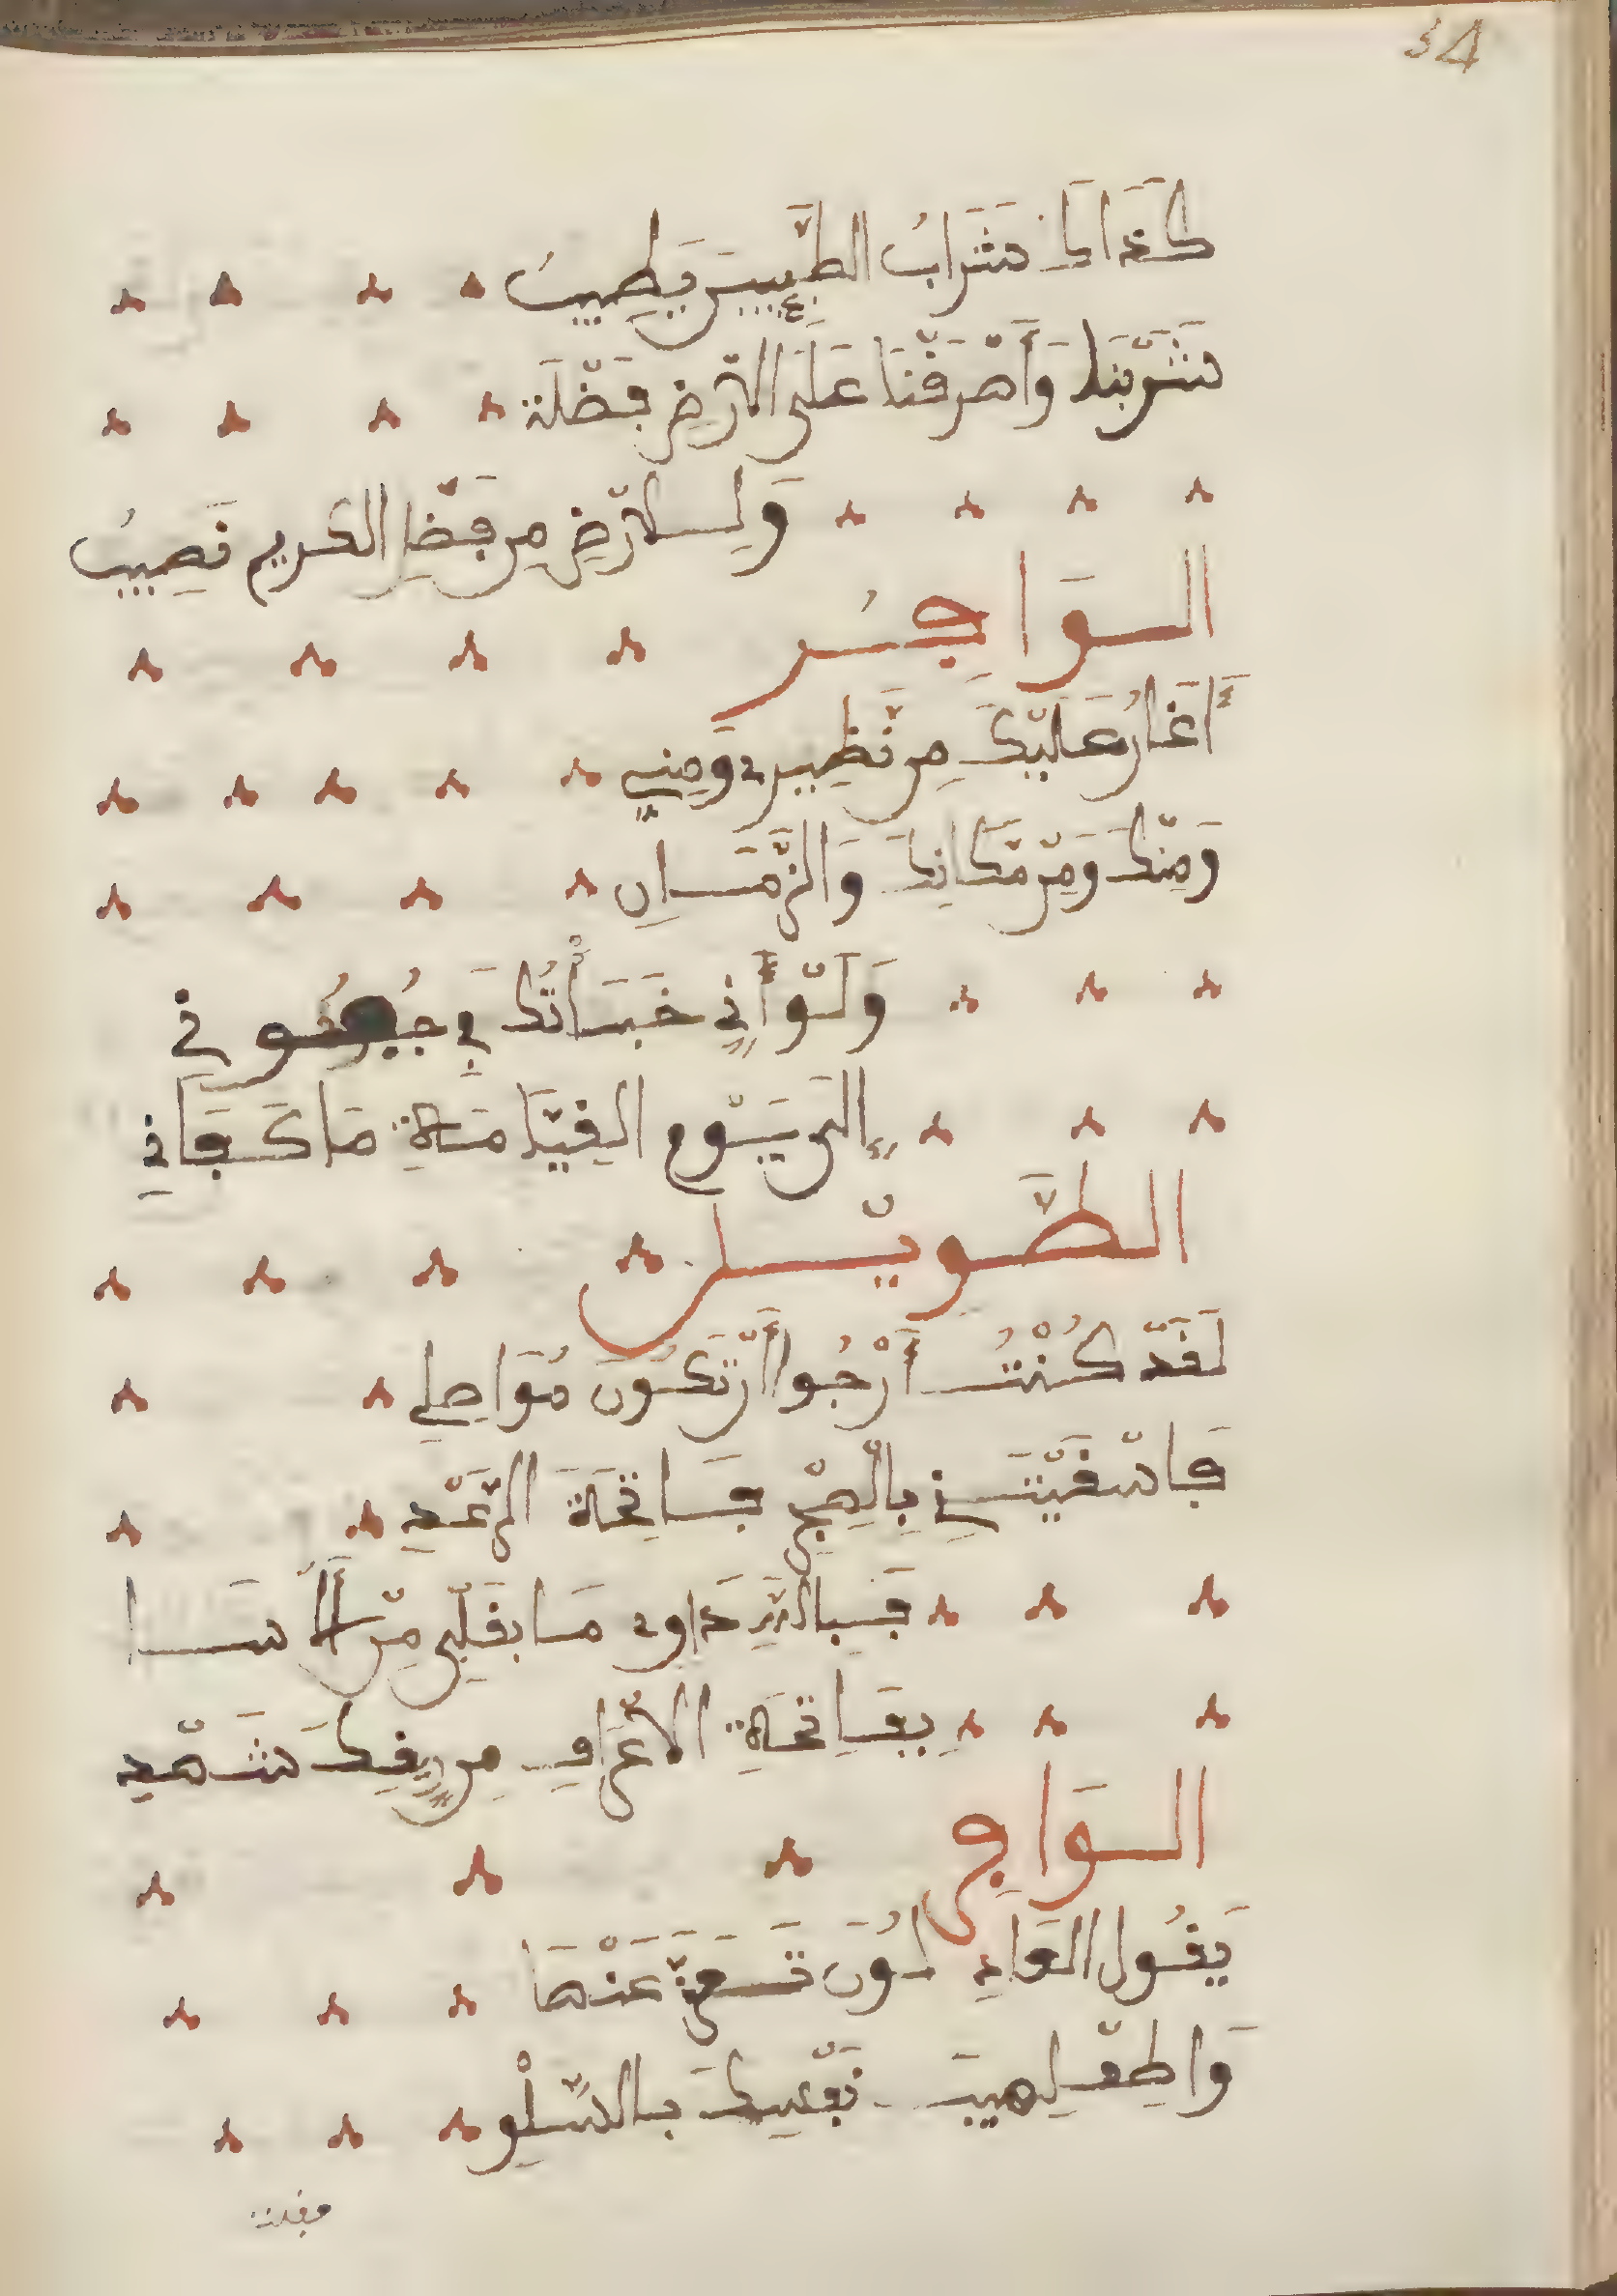 34
كَذَاكَ شَرَابُ الطَّيِّبِينَ يَطِيبُ
شَرِبْنَا وَأَهْرَقْنَا عَلَى الْأَرْضِ فَضْلَةً
وَلِلْأَرْضِ مِن فَضْلِ الكَرِيمِ نَصِيبُ
الوَافِرُ
أَغَارُ عَلَيْكَ مِن نَّظِيرِي وَمِنِّي
وَمِنْكَ وَمِنْ مَكَانِكَ وَالزَّمَانِ
وَلَوْ أَنِّي خَبَأْتُكَ فِي جُفُونِي
إِلَى يَوْمِ القِيَامَةِ مَا كَفَانِي
الطَّوِيل
لَقَدْ كُنْتُ أَرْجُوا أَنْ تَكُونَ مُوَاصِلِي
فَاسْقَيْتَنِي بِالْهَجْرِ فَاتِحَةَ الرَّعْدِ
فَبِاللَّهِ دَاوِي مَا بِقَلْبِي مِنْ الْأَسَا
بِفَاتِحَةِ الْأَعْرَافِ مِن رِيقِكَ شَهْدِ
الوَافِر
يَقُولُ العَاذِلُونَ تَسَعَّ عَنْهَا
وَاطْفِ لَهِيبَ قَلْبِكَ بِالسُّلُوِّ
فقلت